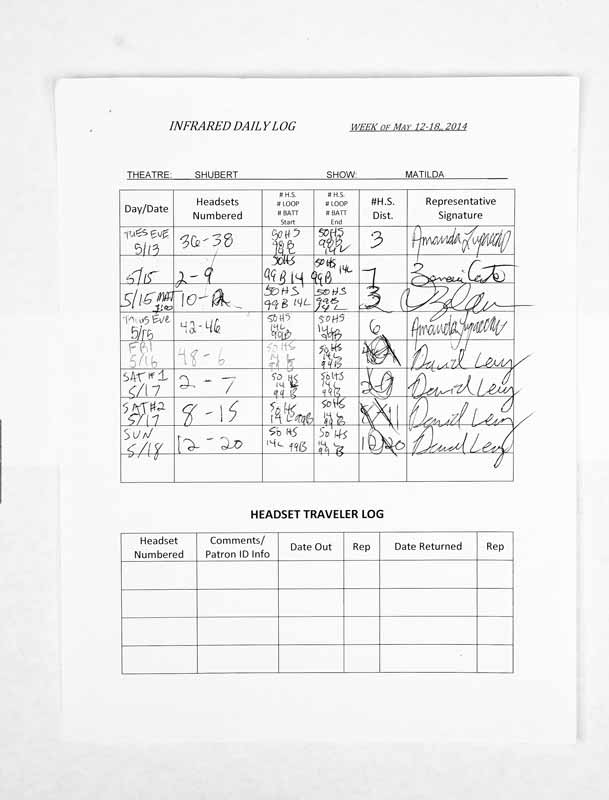 INFRARED DAILY LOG WEEK OF MAY 12-18, 2014
THEATRE: SHUBERT SHOW: MATILDA
Day/Date Headsets Numbered # H.S. # LOOP # BATT Start # H.S. # LOOP # BATT End #H.S. Dist. Representative Signature
TUES EVE 5/13 36-38 50HS 99B 14L 50HS 99B 14L 3 Amanda
5/15 2-9 50HS 99B 14 50HS 14L 99B 7
5/15 MAT 10- 50HS 99B 14L 50HS 99B 14L 3
THURS EVE 5/15 42-46 50HS 14L 99B 50HS 14L 99B 6 Amanda
FRI 5/16 48-6 50HS 14L 99B 50HS 14L 99B David Levy
SAT #1 5/17 2-7 50HS 14L 99B 50HS 14L 99B David Levy
SAT #2 5/17 8-15 50HS 14L 99B 50HS 14L 99B David Levy
SUN 5/18 12-20 50HS 14L 99B 50HS 14L 99B David Levy
HEADSET TRAVELER LOG
Headset Numbered Comments/ Patron ID Info Date Out Rep Date Returned Rep